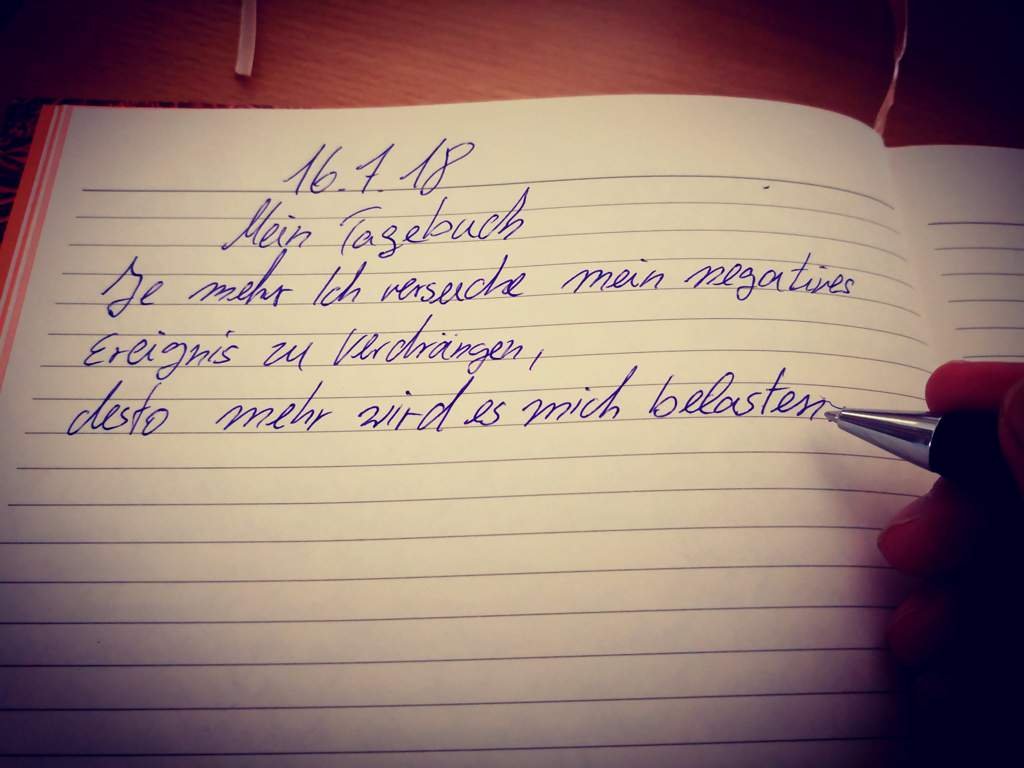 16.7.18
Mein Tagebuch
Je mehr Ich versuche mein negatives
Ereignis zu verdrängen,
desto mehr wird es mich belasten